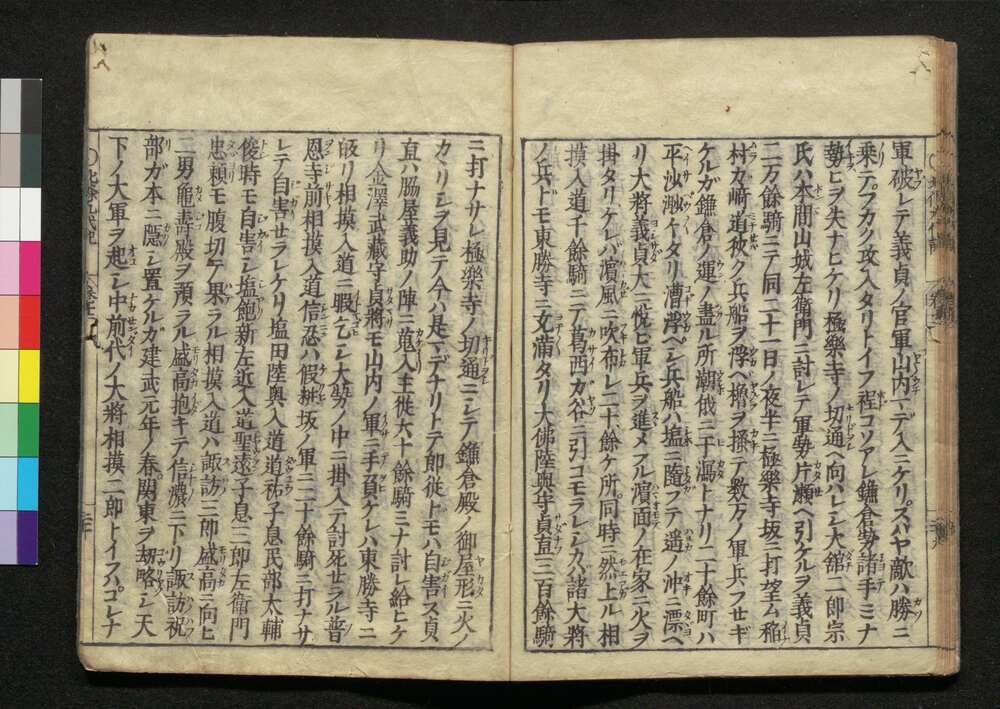 軍破レテ義貞ノ官軍山内マデ入ニケリスハヤ敵ハ勝ニ
乗テフカク攻入タリトイフ程コソアレ鎌倉勢諸手ミナ
勢ヒヲ失ナヒケリ極樂寺ノ切通ヘ向ハレシ大舘二郎宗
氏ハ本間山城左衛門ニ討レテ軍勢片瀬ヘ引ケルヲ義貞
二万余騎ニテ同二十一日ノ夜半ニ極樂寺坂ニ打望ム稲
村カ﨑道狹ク兵船ヲ浮ベ櫓ヲ搔テ數万ノ軍兵フセギ
ケルガ鎌倉ノ運ノ盡ル所潮俄ニ干瀉トナリ二十餘町ハ
平沙渺々タリ漕浮ベシ兵船ハ塩ニ隨フテ遥ノ沖ニ漂ヘ
リ大將義貞大ニ悦ヒ軍兵ヲ進メフル濵面ノ在家ニ火ヲ
掛タリケレバ濵風ニ吹布レ二十餘ケ所同時ニ然上ル相
摸入道千餘騎ニテ葛西カ谷ニ引コモラレシカバ諸大將
ノ兵ドモ東勝寺ニ充滿タリ大佛陸奥守貞直三百餘騎
ニ打ナサレ極樂寺ノ切通ニシテ鎌倉殿ノ御屋形ニ火ノ
カヽリシヲ見テ今ハ是マデナリトテ郎従トモハ自害ス貞
直ハ脇屋義助ノ陣ニ蒐入主従六十餘騎ミナ討レ給ヒケ
リ金澤武藏守貞將モ山内ノ軍ニ手負ケレハ東勝寺ニ
皈リ相摸入道ニ暇乞シ大勢ノ中ニ掛入テ討死セラル普
恩寺前相摸入道信忍ハ假粧坂ノ軍ニ二十餘騎ニ打ナサ
レテ自害セラレケリ塩田陸奥入道道祐子息民部太輔
俊時モ自害シ塩飽新左近入道聖遠子息三郎左衛門
忠頼モ腹切テ果ラル相摸入道ハ諏訪三郎盛高ニ向ヒ
二男龜壽殿ヲ預ラル盛高抱キテ信濃ニ下リ諏訪祝
部ガ本ニ隠シ置ケルガ建武元年ノ春関東ヲ刧略シ天
下ノ大軍ヲ起シ中前代ノ大將相摸二郎トイフハコレナ